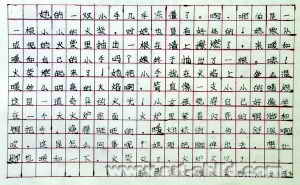 她的一双小手几乎冻僵了。啊,哪怕是一
根小小的火柴,对她也是有好处的
成把的火柴里抽出一根在墙上擦燃了,来暖
暖和自己的小手吗?她终于抽出了一根。
火柴燃起来了!她把小手拢在火焰上。多么温
暖多么明亮的火焰啊 简直像一支小小的
这是一道奇异的火光!小女孩觉得自己好像坐
在一个大火炉里面,火炉 闪亮的铜脚和
铜把手,烧得旺旺的,暖烘烘的,多么舒服
啊!这是怎么回事呢?她刚把脚伸出去
也暖和一下,火柴灭了,火炉不见了。